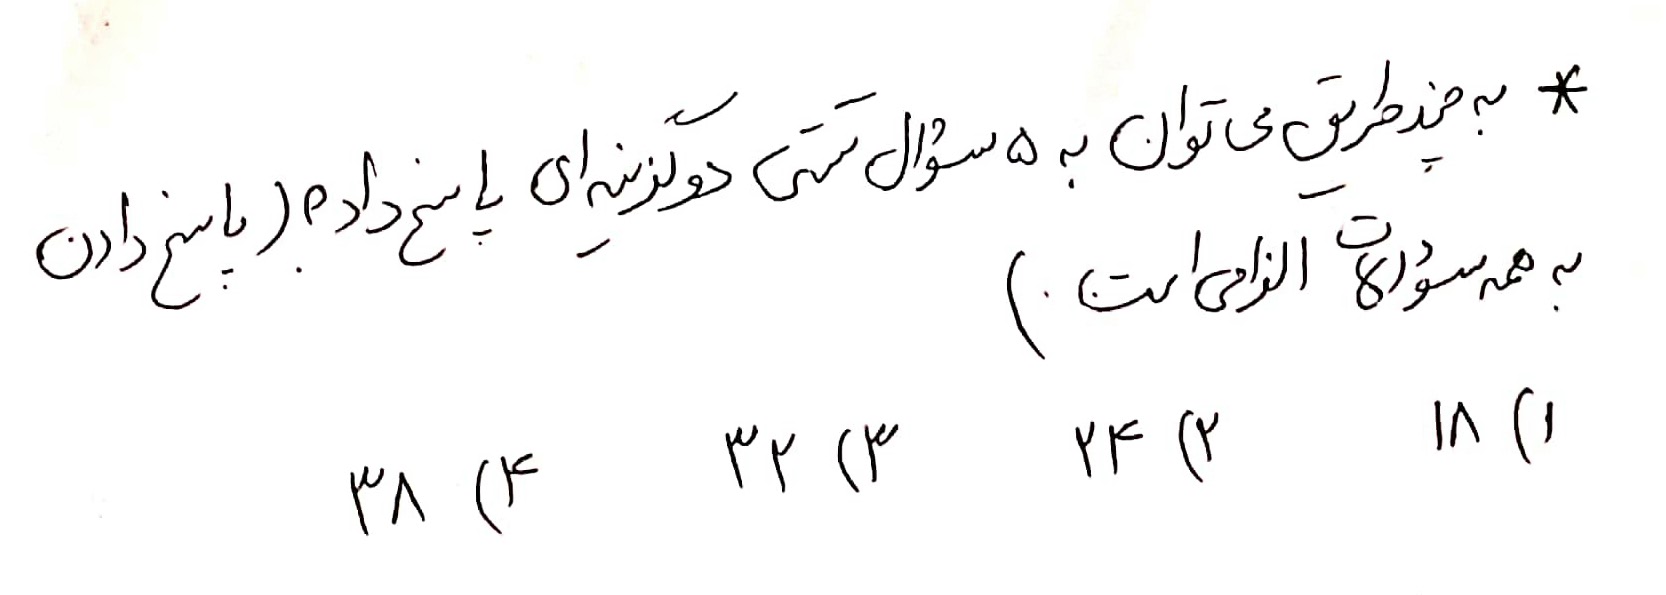 * به چند طریق می توان به ۵ سؤال تستی دو گزینه ای پاسخ داد؟ (پاسخ دادن
به همه سؤالات الزامی است.)
۱) ۱۸ ۲) ۲۴ ۳) ۳۲ ۴) ۳۸